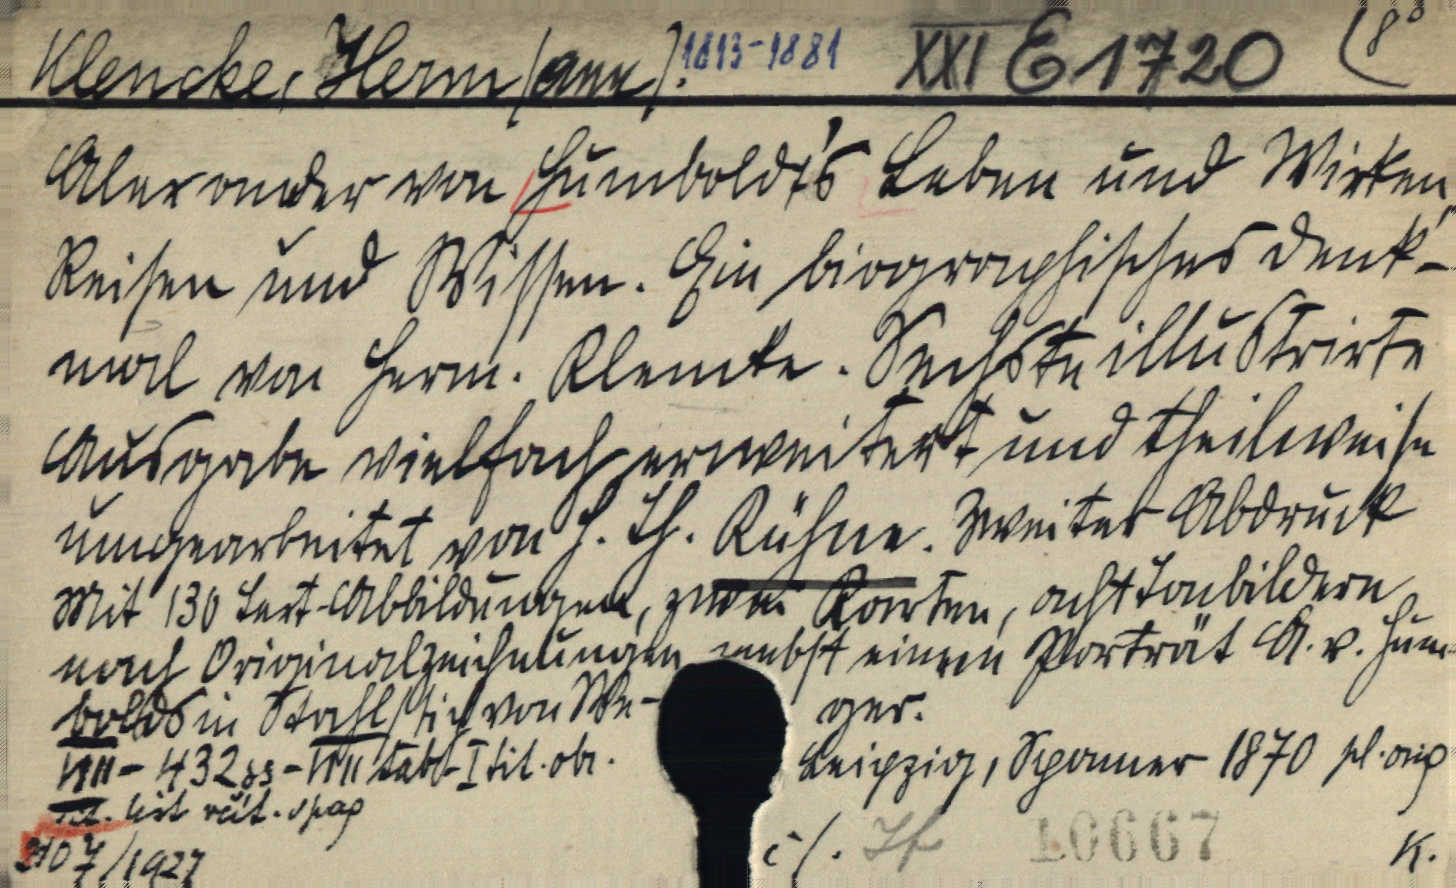 Klencke, Herm/ann/. 1813-1881 XXI E 1720 (8°
Alexander von Humboldt's Leben und Wirken,
Reisen und Wissen. Ein biographisches Denk-
mal von Herm. Klencke. Sechste illustrirte
Ausgabe vielfach erweitert und theilweise
umgearbeitet von H. Th. Kühne. Zweiter Abdruck
Mit 130 Text-Abbildungen, zwei Karten, acht Tonbildern
nach Originalzeichnungen nebst einem Porträt A. v. Hum-
boldts in Stahlstich von We- ger.
VIII - 432 ss - VIII tabl - I tit. obr. Leipzig, Spamer 1870
1927 č/. 10667 K.